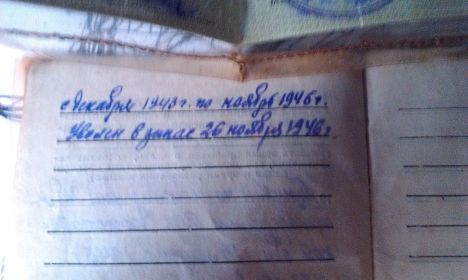 с декабря 1943 г. по ноябрь 1946 г.
Уволен в запас 26 ноября 1946 г.